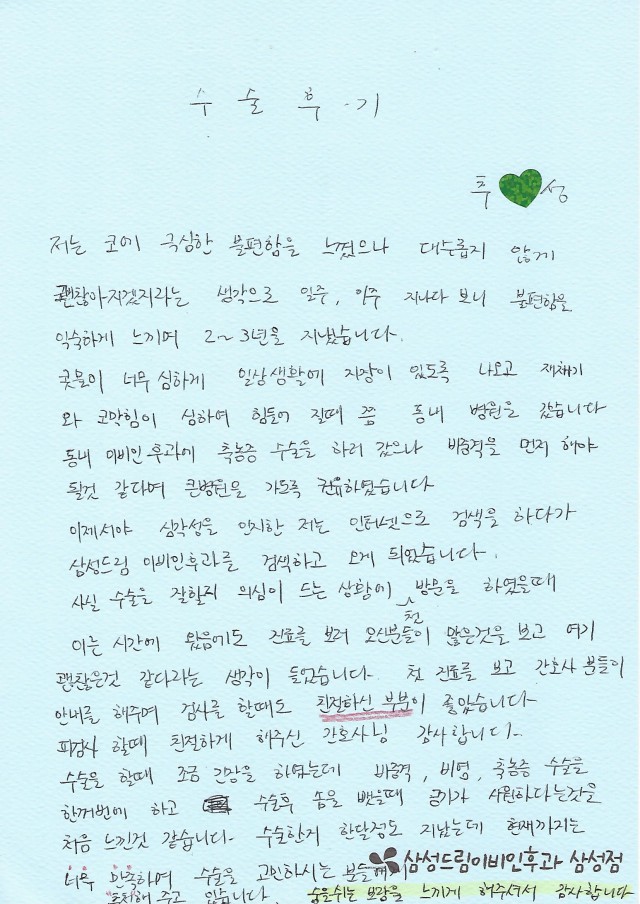 수술 후기
추 성
저는 코에 극심한 불편함을 느꼈으나 대수롭지 않게
괜찮아지겠지라는 생각으로 일주, 이주 지나다 보니 불편함을
익숙하게 느끼며 2~3년을 지냈습니다.
콧물이 너무 심하게 일상생활에 지장이 있도록 나오고 재채기
와 코막힘이 심하여 힘들어 질때 쯤 동내 병원을 갔습니다
동내 이비인후과에 축농증 수술을 하러 갔으나 비중격을 먼저 해야
될것 같다며 큰병원을 가도록 권유하였습니다
이제서야 심각성을 인지한 저는 인터넷으로 검색을 하다가
삼성드림 이비인후과를 검색하고 오게 되었습니다.
사실 수술을 잘할지 의심이 드는 상황에 첫 방문을 하였을때
이른 시간에 왔음에도 진료를 보러 오신분들이 많은것을 보고 여기
괜찮은것 같다라는 생각이 들었습니다. 첫 진료를 보고 간호사 분들이
안내를 해주며 검사를 할때도 친절하신 부분이 좋았습니다
피검사 할때 친절하게 해주신 간호사님 감사합니다.
수술을 할때 조금 긴장을 하였는데 비중격, 비염, 축농증 수술을
한꺼번에 하고 수술후 솜을 뺐을때 공기가 시원하다는것을
처음 느낀것 같습니다. 수술한지 한달정도 지났는데 현재까지는
너무 만족하며 수술을 고민하시는 분들에게
추천해 주고 있습니다. 숨을쉬는 보람을 느끼게 해주셔서 감사합니다
삼성드림이비인후과 삼성점